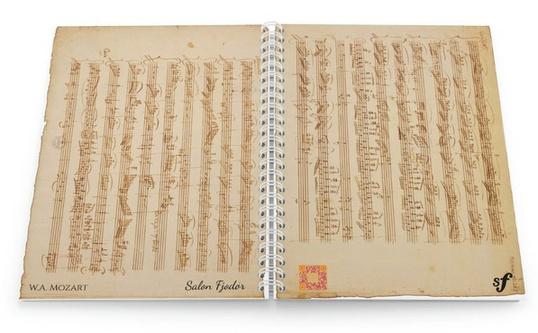 W.A. MOZART
Salon Fjodor
sf